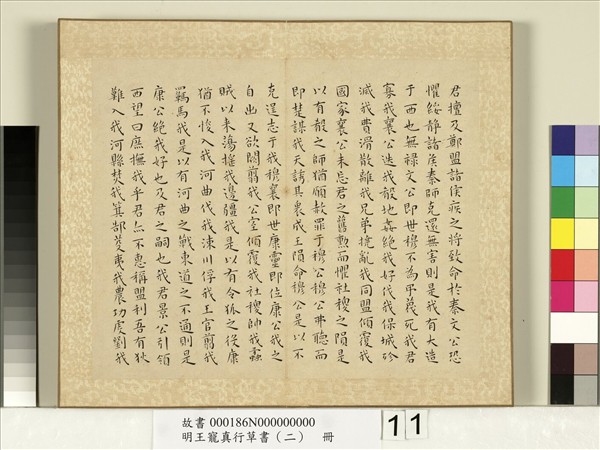 君擅及鄭盟諸侯疾之將致命於秦文公恐
懼綏靜諸侯秦師克還無害則是我有大造
于西也無祿文公即世穆不為弔蔑死我君
寡我襄公迭我殽地姦絕我好伐我保城殄
滅我費滑散離我兄弟撓亂我同盟傾覆我
國家襄公未忘君之舊勳而懼社稷之隕是
以有殽之師猶願赦罪于穆公穆公弗聽而
即楚謀我天誘其衷成王隕命穆公是以不
克逞志于我穆襄即世康靈即位康公我之
自出又欲闕翦我公室傾覆我社稷帥我蟊
賊以來蕩搖我邊疆我是以有令狐之役康
猶不悛入我河曲伐我涑川俘我王官翦我
羈馬我是以有河曲之戰東道之不通則是
康公絕我好也及君之嗣也我君景公引領
西望曰庶撫我乎君亦不惠稱盟利吾有狄
難入我河縣焚我箕郜芟夷我農功虔劉我
故書 000186N000000000
明王寵真行草書（二）　冊
11